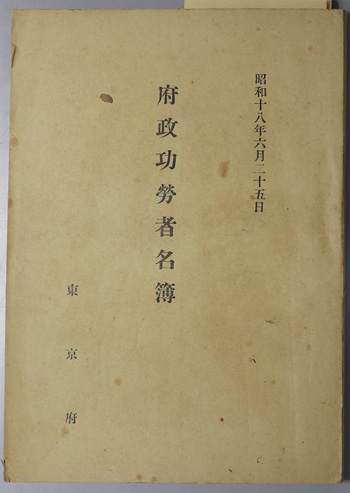 昭和十八年六月二十五日
府政功勞者名簿
東京府